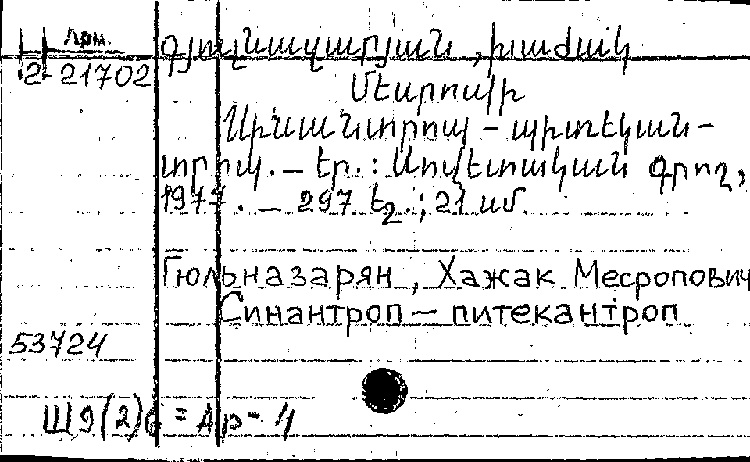 Արմ.
2-21702
Գյուլնազարյան, Խաժակ
Մեսրոպի
Սինանտրոպ - պիտեկան-
տրոպ. — Եր.: Սովետական գրող,
1977. — 297 էջ.; 21 սմ.
Гюльназарян, Хажак Месропович
Синантроп — питекантроп
53724
Ш9(2)6 = Ар - 4